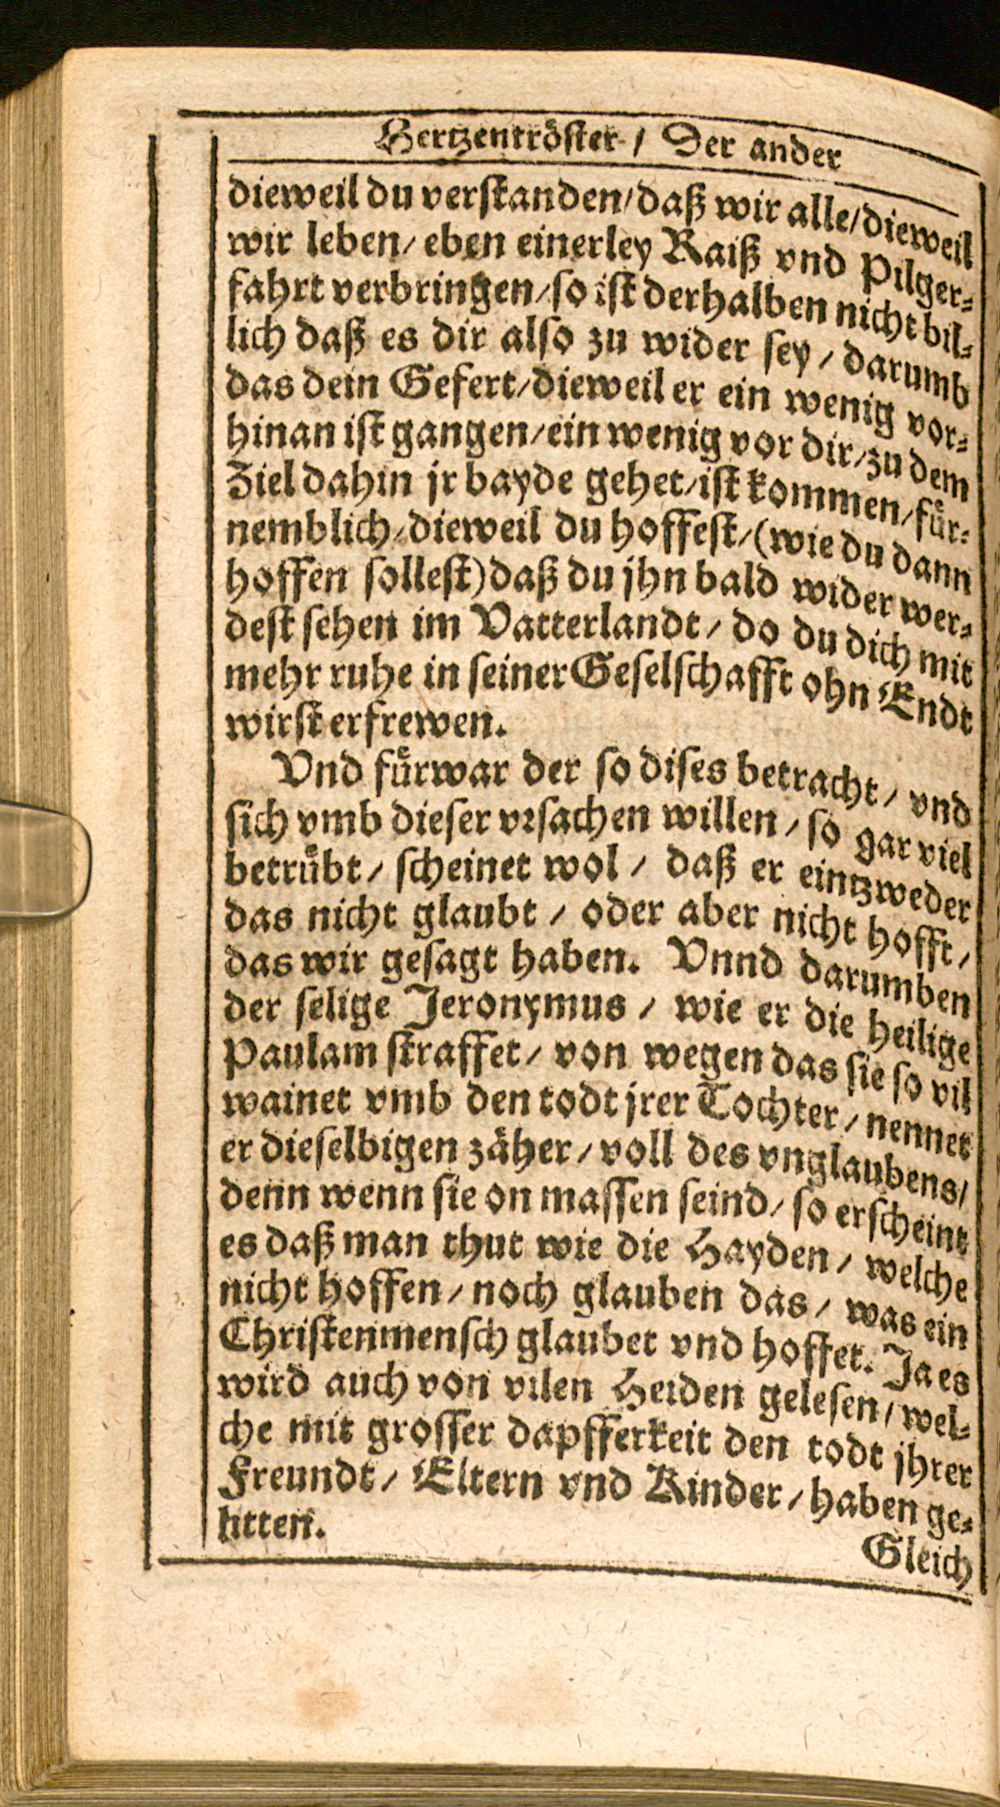 Hertzentröster / Der ander
dieweil du verstanden / daß wir alle / dieweil
wir leben / eben einerley Raiß vnd Pilger-
fahrt verbringen / so ist derhalben nicht bil-
lich daß es dir also zu wider sey / darumb
das dein Gefert / dieweil er ein wenig vor-
hinan ist gangen / ein wenig vor dir / zu dem
Ziel dahin jr bayde gehet / ist kommen / für-
nemblich / dieweil du hoffest / (wie du dann
hoffen sollest) daß du jhn bald wider wer-
dest sehen im Vatterlandt / do du dich mit
mehr ruhe in seiner Geselschafft ohn Endt
wirst erfrewen.
Vnd fürwar der so dises betracht / vnd
sich vmb dieser vrsachen willen / so gar viel
betrübt / scheinet wol / daß er eintzweder
das nicht glaubt / oder aber nicht hofft /
das wir gesagt haben. Vnnd darumben
der selige Jeronymus / wie er die heilige
Paulam straffet / von wegen das sie so vil
wainet vmb den todt jrer Tochter / nennet
er dieselbigen zäher / voll des vnglaubens /
denn wenn sie on massen seind / so erscheint
es daß man thut wie die Hayden / welche
nicht hoffen / noch glauben das / was ein
Christenmensch glaubet vnd hoffet. Ja es
wird auch von vilen Heiden gelesen / wel-
che mit grosser dapfferkeit den todt jhrer
Freundt / Eltern vnd Kinder / haben ge-
litten.
Gleich